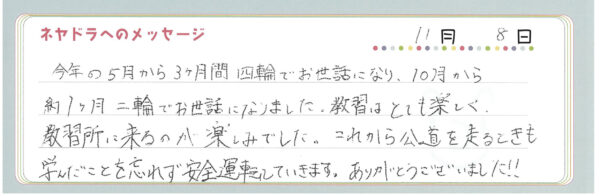 ネヤドラへのメッセージ
11月 8日
今年の5月から3ヶ月間 四輪でお世話になり、10月から
約1ヶ月 二輪でお世話になりました。教習はとても楽しく、
教習所に来るのが楽しみでした。これから公道を走るときも
学んだことを忘れず安全運転していきます。ありがとうございました!!